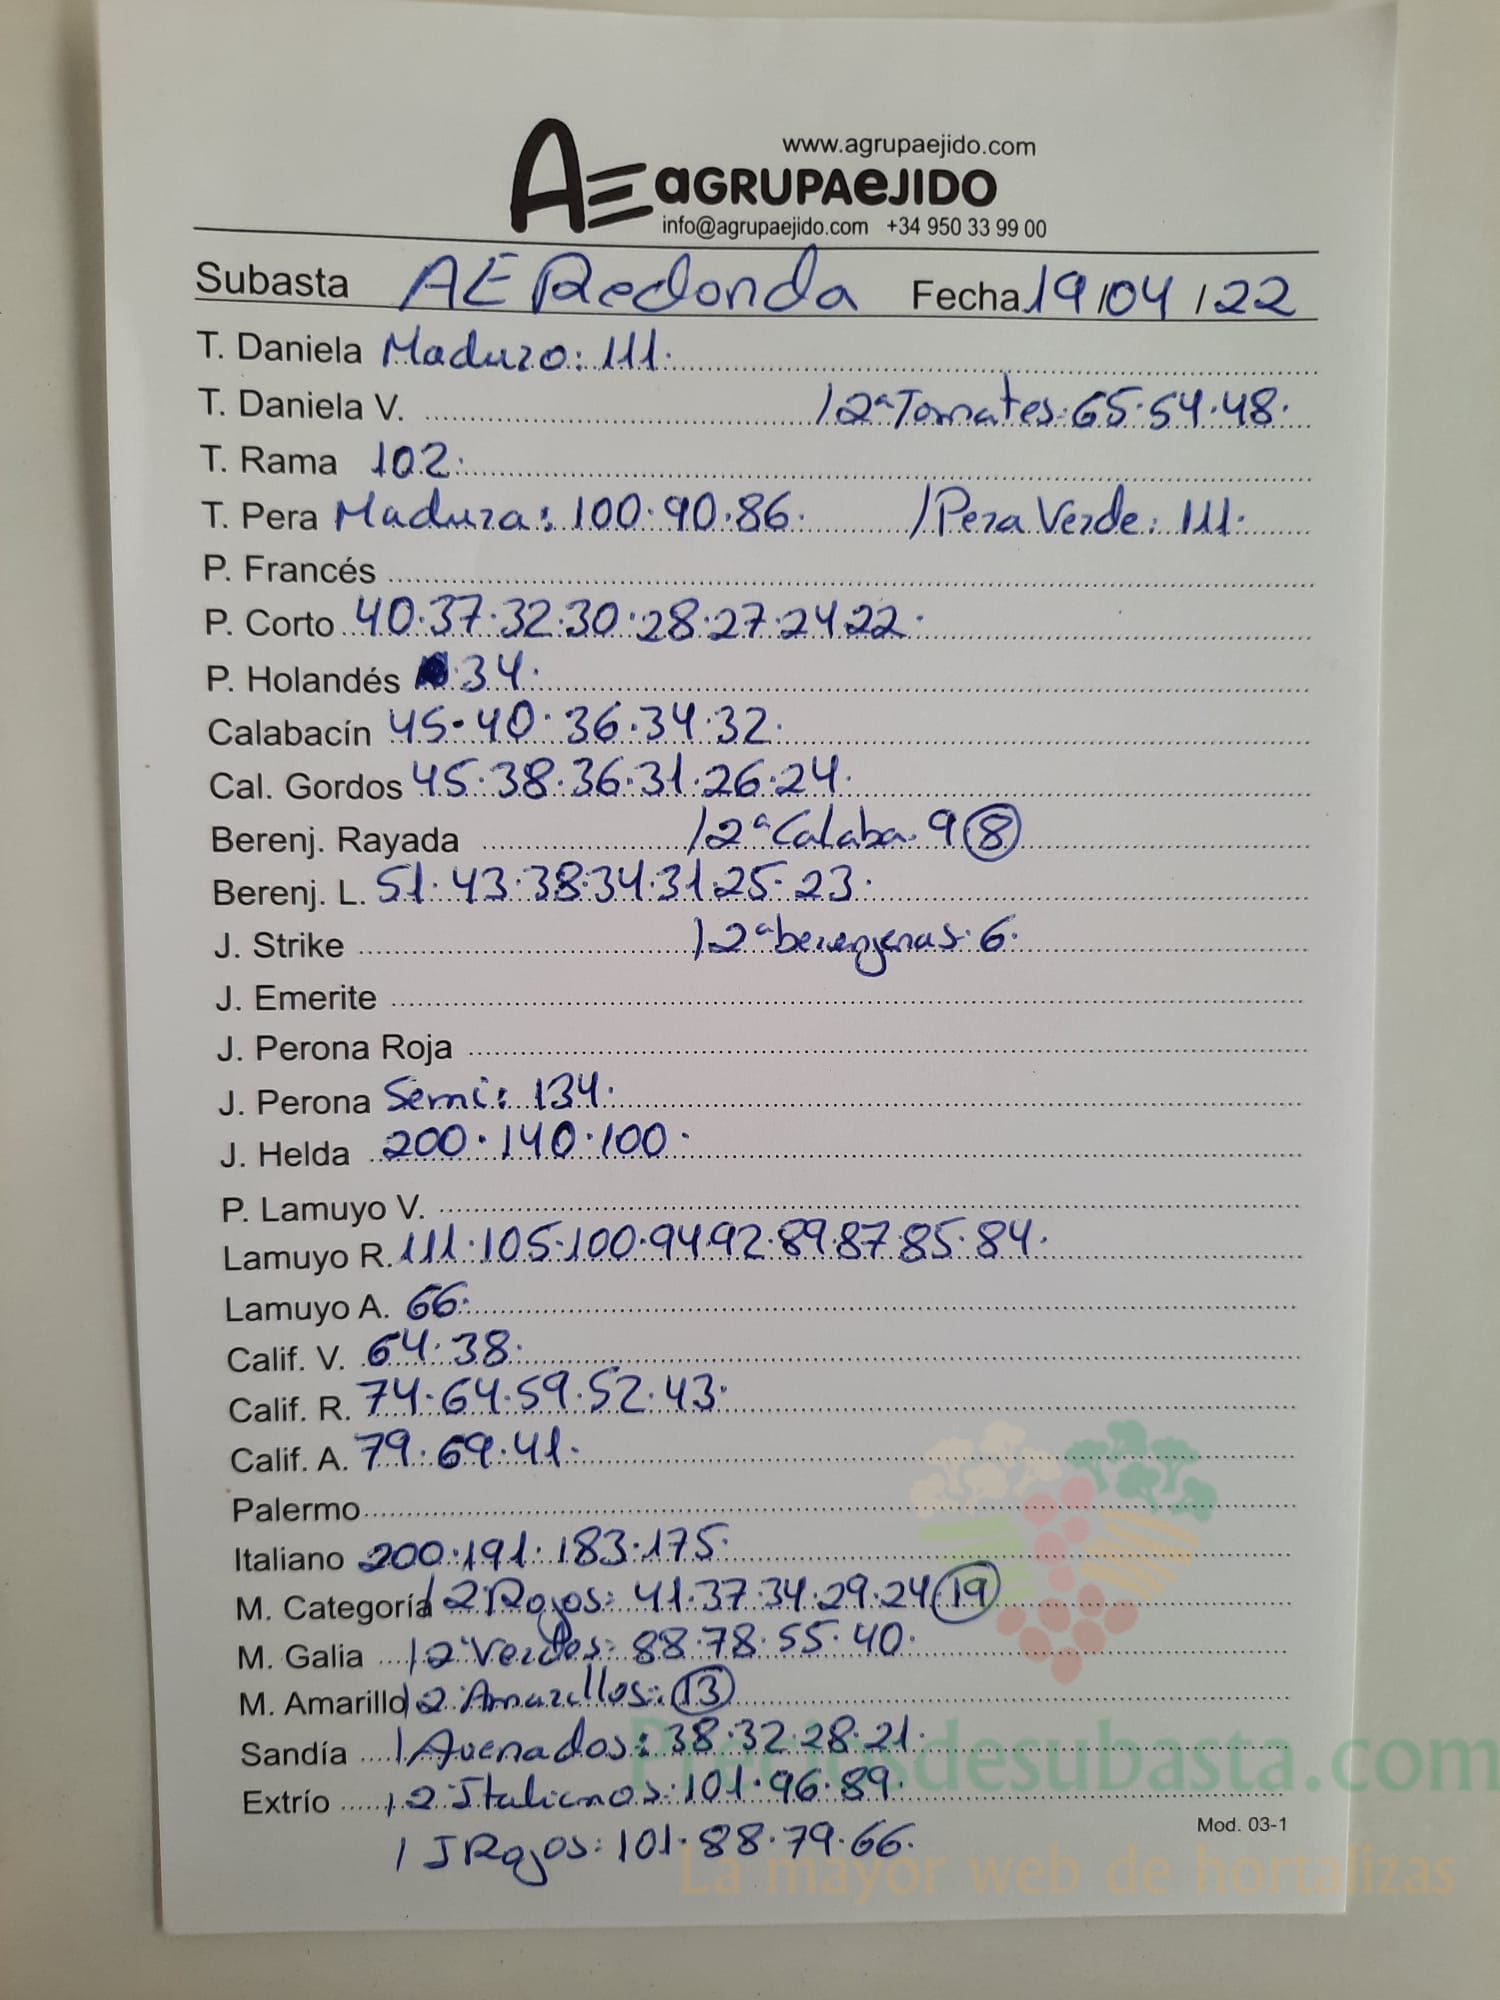 www.agrupaejido.com
AE aGRUPAeJIDO
info@agrupaejido.com +34 950 33 99 00
Subasta AE Redonda Fecha 19/04/22
T. Daniela Maduro: 111.
T. Daniela V. / 2ª Tomates: 65.54.48.
T. Rama 102.
T. Pera Madura: 100.90.86. / Pera Verde: 111.
P. Francés
P. Corto 40.37.32.30.28.27.24.22.
P. Holandés 34.
Calabacín 45.40.36.34.32.
Cal. Gordos 45.38.36.31.26.24.
Berenj. Rayada / 2ª Calaba. 9 (8)
Berenj. L. 51.43.38.34.31.25.23.
J. Strike / 2ª berenjenas. 6.
J. Emerite
J. Perona Roja
J. Perona Semi: 134.
J. Helda 200.140.100.
P. Lamuyo V.
Lamuyo R. 111.105.100.94.92.89.87.85.84.
Lamuyo A. 66.
Calif. V. 64.38.
Calif. R. 74.64.59.52.43.
Calif. A. 79.69.41.
Palermo
Italiano 200.191.183.175.
M. Categoría / 2 Rojos: 41.37.34.29.24 (19)
M. Galia / 2ª Verdes: 88.78.55.40.
M. Amarillo / 2 Amarillos: (13)
Sandía / Asenados: 38.32.28.21.
Extrío / 2 Italianos: 101.96.89.
/ J Rojos: 101.88.79.66.
Mod. 03-1
Preciosdesubasta.com
La mayor web de hortalizas